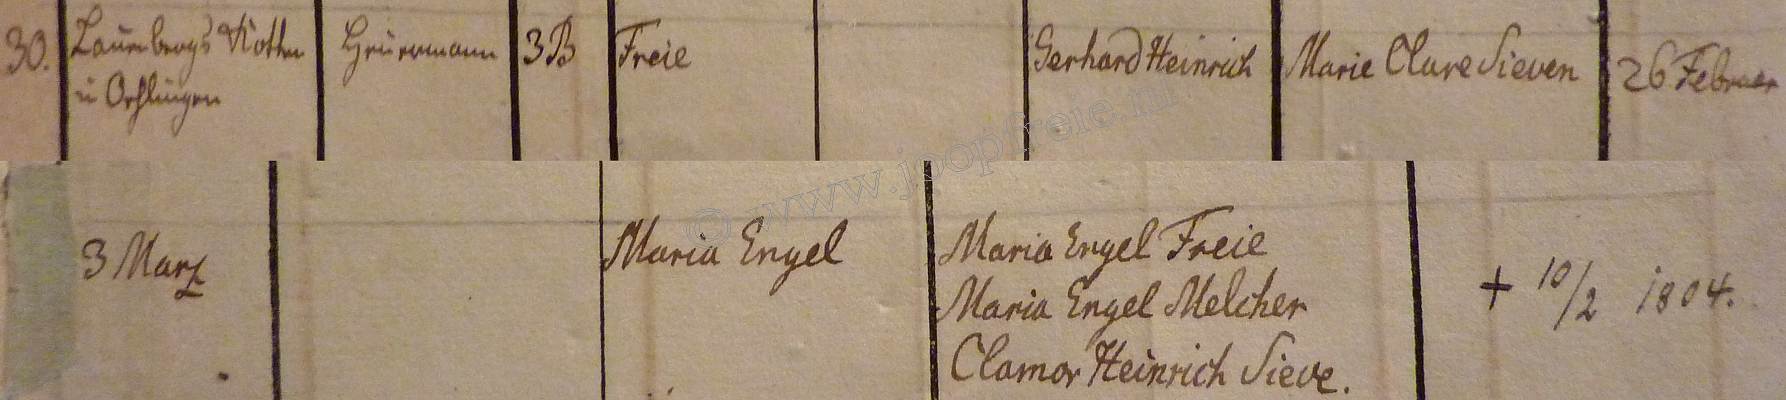 30.
Lauenbergs Kotten
in Oehlingen
Heuermann
3B
Freie
Gerhard Heinrich
Marie Clare Sieven
26 Februar
© www.joopfreie.nl
3 Marz
Maria Engel
Maria Engel Freie
Maria Engel Melcher
Clamor Heinrich Sieve.
+ 10/2 1804.